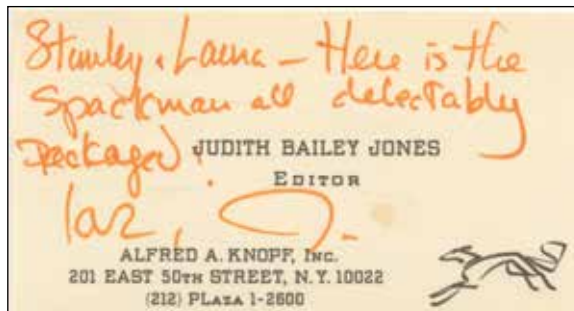 Stanley, Laura – Here is the
Spackman all delectably
packaged!
JUDITH BAILEY JONES
EDITOR
J.
ALFRED A. KNOPF, INC.
201 EAST 50TH STREET, N.Y. 10022
(212) PLAZA 1-2600